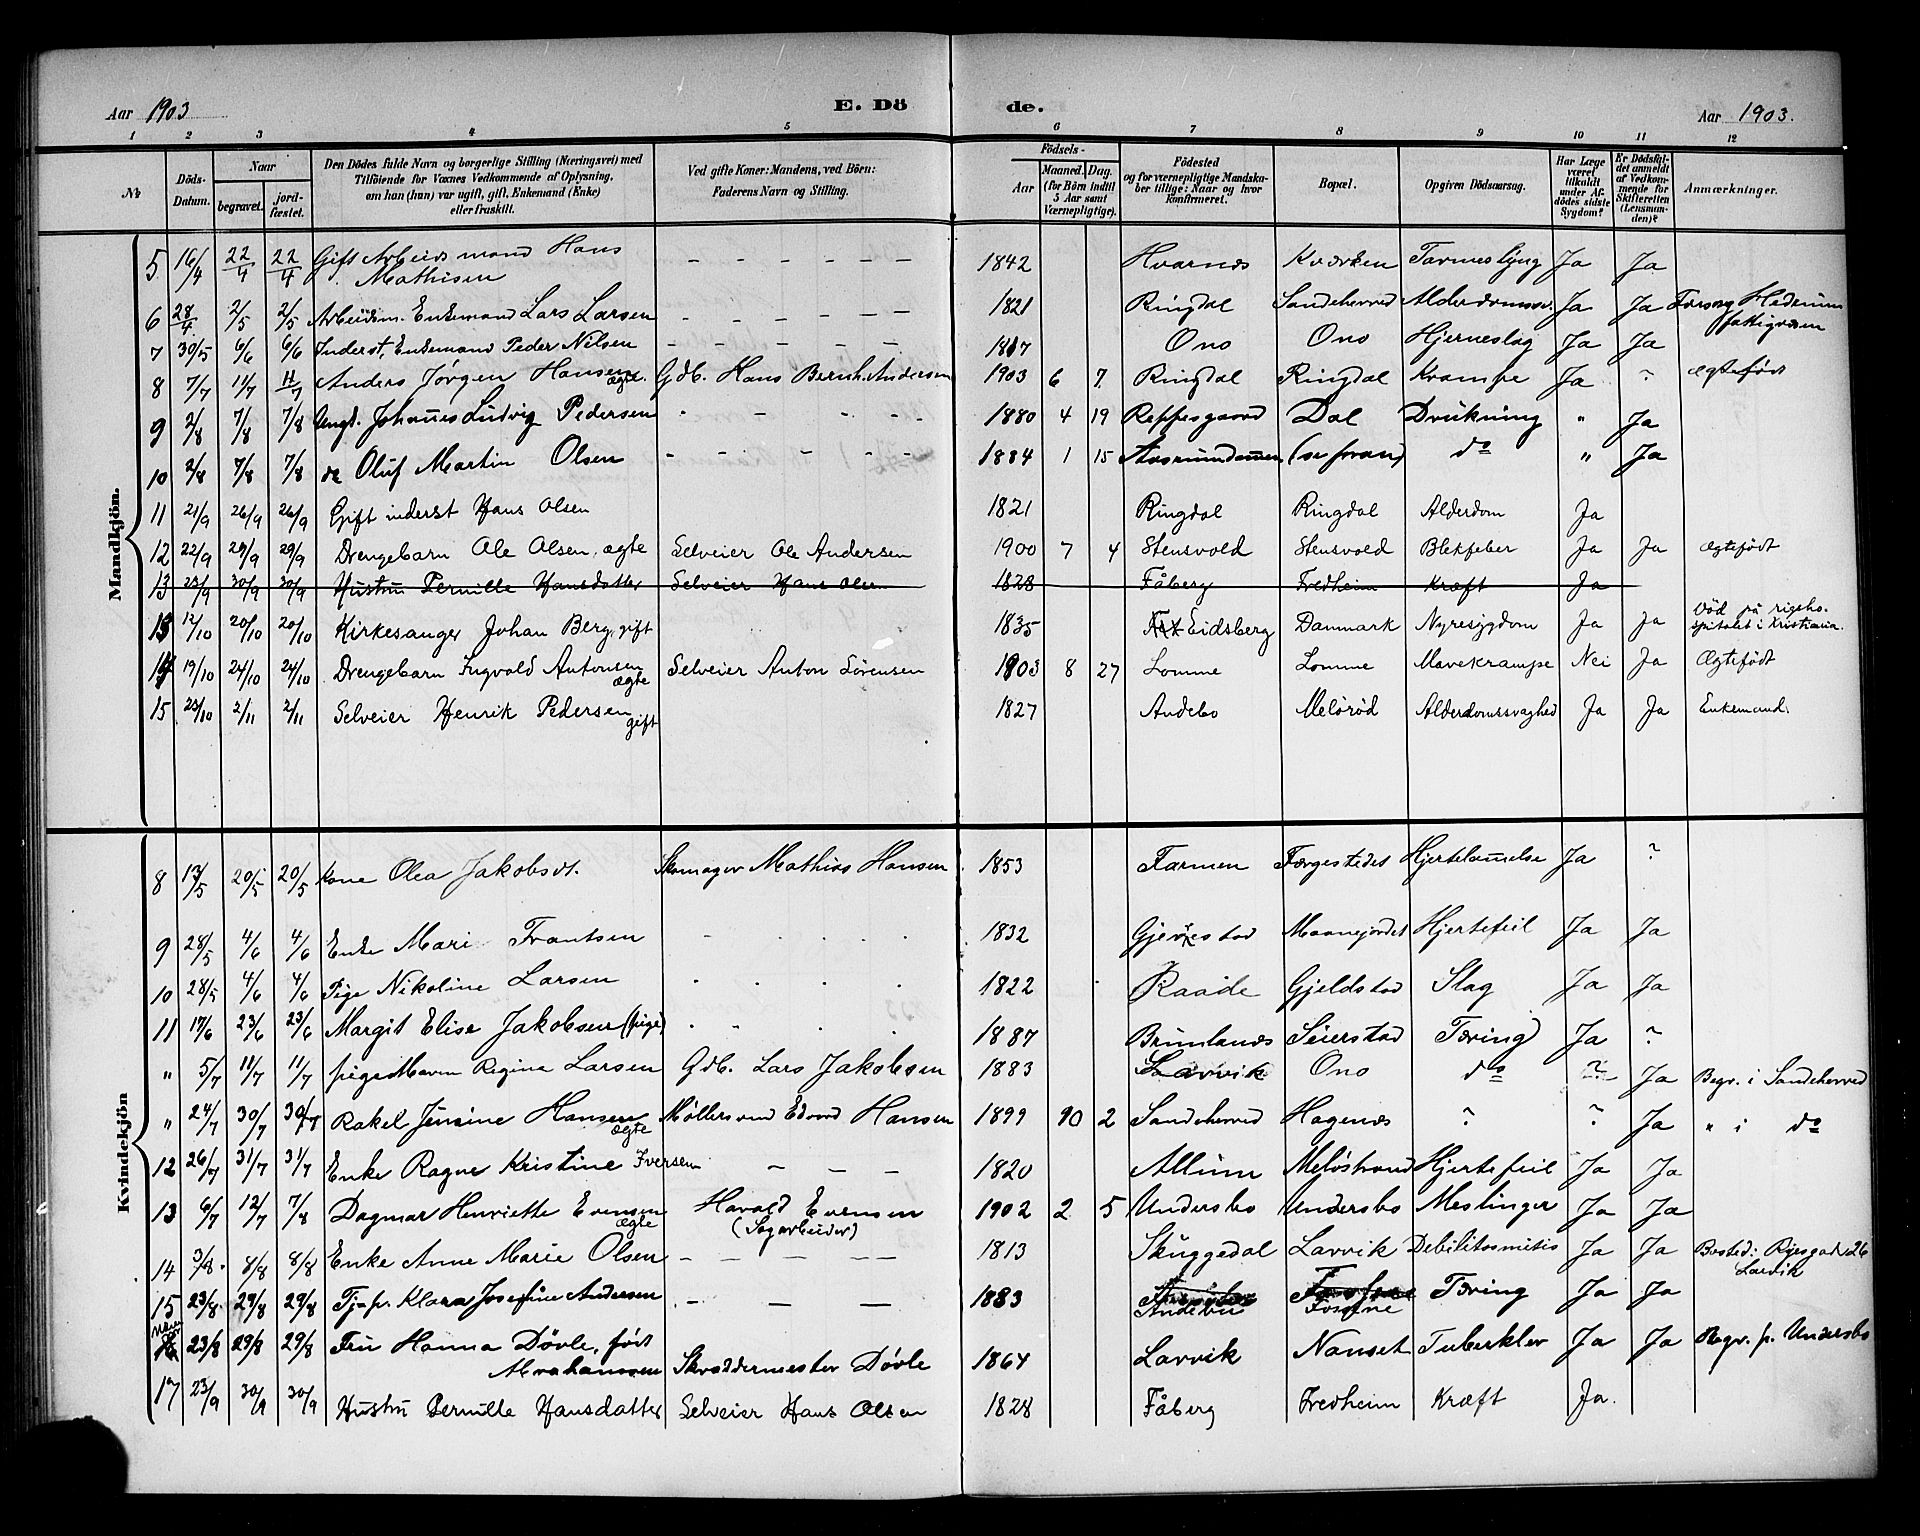 Aar 1903
E. Dö
de.
Aar 1903.
1 2 3 4 5 6 7 8 9 10 11 12
№
Döds-Datum.
Naar
begravet.
jord-fæstet.
Den Dödes fulde Navn og borgerlige Stilling (Næringsvei) med
Tilföiende for Voxnes Vedkommende af Oplysning,
om han (han) var ugift, gift, Enkemand (Enke)
eller fraskilt.
Ved gifte Koner: Mandens, ved Börn:
Faderens Navn og Stilling.
Födsels-
Aar
Maaned. Dag.
(for Börn indtil
5 Aar samt
Værnepligtige).
Födested
og for værnepligtige Mandska-
ber tillige: Naar og hvor
konfirmeret.
Bopæl.
Opgiven Dödsaarsag.
Har Læge
været
tilkaldt
under Af-
dödes sidste
Sygdom?
Er Dödsfal-
det anmeldt
af Vedkom-
mende for
Skifteretten
(Lensman-
den)?
Anmærkninger.
Mandkjön.
5 16/4 22/4 22/4 Gift Arbeidsmand Hans Mathisen – – – – – 1842 Hvarnes Kværken Tarmeslyng Ja Ja
6 28/4 2/5 2/5 Arbeidsm. Enkemand Lars Larsen – – – – – 1821 Ringdal Sandeherred Alderdomssv. Ja Ja Forsørg Hedrum fattigvæsen
7 30/5 6/6 6/6 Inderst, Enkemand Peder Nilsen – – – – – 1817 Ono Ono Hjerneslag Ja Ja
8 7/7 11/7 11/7 Anders Jørgen Hansen ægte. Gdb. Hans Bernh. Andersen 1903 6 7 Ringdal Ringdal Krampe Ja ? Ægtefødt
9 2/8 7/8 7/8 Ungk. Johannes Ludvig Pedersen - - - - 1880 4 19 Reppesgaard Dal Drukning " Ja
10 2/8 7/8 7/8 do Oluf Martin Olsen - - - - - 1884 1 15 (se foran) do " Ja
11 21/9 26/9 26/9 Gift inderst Hans Olsen 1821 Ringdal Ringdal Alderdom Ja
12 22/9 29/9 29/9 Drengebarn Ole Olsen, ægte Selveier Ole Andersen 1900 7 4 Stensvold Stensvold Blekfeber Ja Ja Ægtefødt
13 23/9 30/9 30/9 Hustru Pernille Hansdatter Selveier Hans Olsen 1828 Fåberg Fredheim Kræft Ja
13 12/10 20/10 20/10 Kirkesanger Johan Berg, gift 1835 Eidsberg Danmark Nyresygdom Ja Ja Død på rigsho-
spitalet i Kristiania.
14 19/10 24/10 24/10 Drengebarn Ingvald Antonsen ægte Selveier Anton Sörensen 1903 8 27 Lomme Lomme Mavekrampe Nei Ja Ægtefødt
15 23/10 2/11 2/11 Selveier Henrik Pedersen gift 1827 Andebo Melöröd Alderdomssvaghed Ja Ja Enkemand.
Kvindekjön
8 13/5 20/5 20/5 Kone Olea Jakobsdt. Skomager Mathias Hansen 1853 Farmen Færgestedet Hjertelammelse Ja ?
9 28/5 4/6 4/6 Enke Mari Frantsen - . . . . 1832 Gjerestad Maanejordet Hjertefeil Ja Ja
10 28/5 4/6 4/6 Pige Nikoline Larsen . . . . 1822 Raade Gjeldstad Slag Ja Ja
11 17/6 23/6 23/6 Margit Elise Jakobsen (pige) . . . . 1887 Brunlanes Seierstad Tæring Ja ?
" 5/7 11/7 11/7 pige Maren Regina Larsen Gdb. Lars Jakobsen 1883 Larvik Ono do ? Ja Begr. i Sandeherred
" 24/7 30/7 30/7 Rakel Jensine Hansen ægte Møllersvend Edvard Hansen 1899 10 2 Sandeherred Hagenæs ? ? Ja " i do
12 26/7 31/7 31/7 Enke Ragne Kristine Iversen – – – 1820 Allum Meløstrand Hjertefeil Ja Ja
13 6/7 12/7 7/8 Dagmar Henriette Evensen ægte Harald Evensen
(Sagarbeider) 1902 2 5 Undersbo Undersbo Meslinger Ja Ja
14 3/8 8/8 8/8 Enke Anne Marie Olsen – – – – 1813 Skuggedal Larvik Debilitas Ja Ja Bosted: Ryesgade 26
Larvik
15 23/8 29/8 29/8 Tj-p. Klara Josefine Andersen – – – 1883 Andebu Fosne Tæring Ja Ja
23/8 29/8 29/8 Fru Hanna Dövle, født
Abrahamsen Skræddermester Dövle 1864 Larvik Nanset Tuberkler Ja Ja Begr. p. Undersbo
17 23/9 30/9 30/9 Hustru Pernille Hansdatter Selveier Hans Olsen 1828 Fåberg Fredheim Kræft Ja.